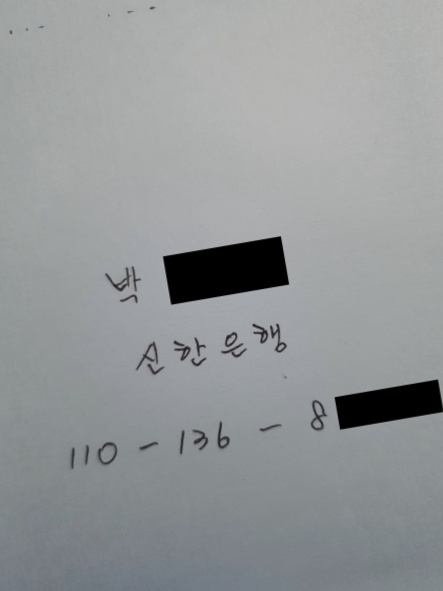 백
신한은행
110 - 136 - 8